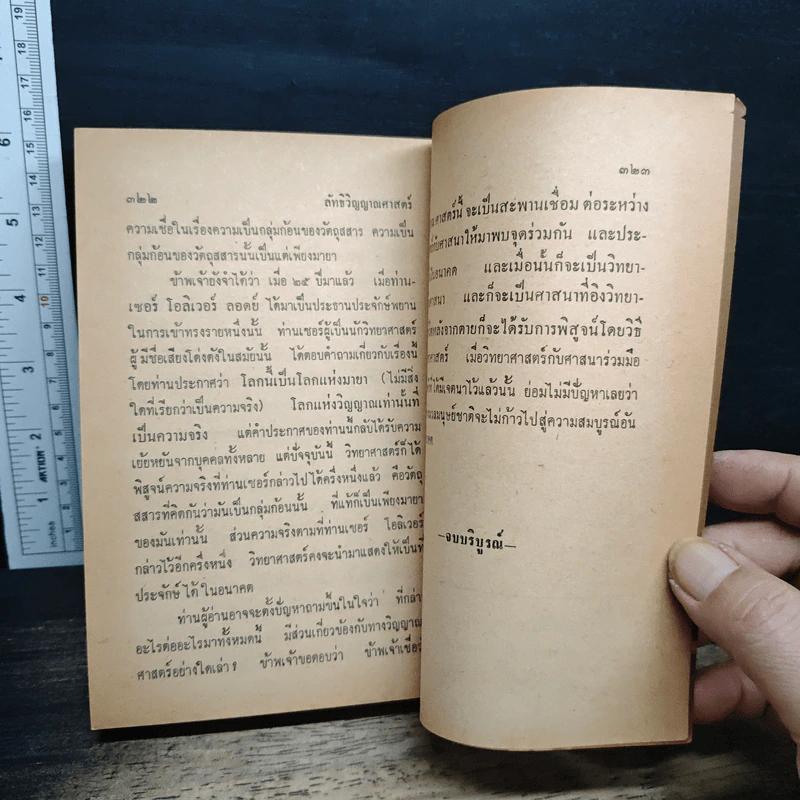 ๓๒๒ ลัทธิวิญญาณศาสตร์
ความเชื่อในเรื่องความเป็นกลุ่มก้อนของวัตถุสสาร ความเป็น
กลุ่มก้อนของวัตถุสสารนั้นเป็นแต่เพียงมายา
ข้าพเจ้ายังจำได้ว่า เมื่อ ๒๕ ปีมาแล้ว เมื่อท่าน-
เซอร์ โอลิเวอร์ ลอดย์ ได้มาเป็นประธานประจักษ์พยาน
ในการเข้าทรงรายหนึ่งนั้น ท่านเซอร์ผู้เป็นนักวิทยาศาสตร์
ผู้มีชื่อเสียงโด่งดังในสมัยนั้น ได้ตอบคำถามเกี่ยวกับเรื่องนี้
โดยท่านประกาศว่า โลกนี้เป็นโลกแห่งมายา (ไม่มีสิ่ง
ใดที่เรียกว่าเป็นความจริง) โลกแห่งวิญญาณเท่านั้นที่
เป็นความจริง แต่คำประกาศของท่านนี้กลับได้รับความ
เย้ยหยันจากบุคคลทั้งหลาย แต่ปัจจุบันนี้ วิทยาศาสตร์ก็ได้
พิสูจน์ความจริงที่ท่านเซอร์กล่าวไปได้ครึ่งหนึ่งแล้ว คือวัตถุ
สสารที่คิดกันว่ามันเป็นกลุ่มก้อนนั้น ที่แท้ก็เป็นเพียงมายา
ของมันเท่านั้น ส่วนความจริงตามที่ท่านเซอร์ โอลิเวอร์
กล่าวไว้อีกครึ่งหนึ่ง วิทยาศาสตร์คงจะนำมาแสดงให้เป็นที่
ประจักษ์ได้ในอนาคต
ท่านผู้อ่านอาจจะตั้งปัญหาถามขึ้นในใจว่า ที่กล่า
อะไรต่ออะไรมาทั้งหมดนี้ มีส่วนเกี่ยวข้องกับทางวิญญาณ
ศาสตร์อย่างใดเล่า? ข้าพเจ้าขอตอบว่า ข้าพเจ้าเชื่อ
๓๒๓
ศาสตร์นี้ จะเป็นสะพานเชื่อม ต่อระหว่าง
กับศาสนาให้มาพบจุดร่วมกัน และประ-
อนาคต และเมื่อนั้นก็จะเป็นวิทยา-
ศาสนา และก็จะเป็นศาสนาที่อิงวิทยา-
หลังจากตายก็จะได้รับการพิสูจน์โดยวิธี
ศาสตร์ เมื่อวิทยาศาสตร์กับศาสนาร่วมมือ
ที่ได้มีเจตนาไว้แล้วนั้น ย่อมไม่มีปัญหาเลยว่า
มนุษย์ชาติจะไม่ก้าวไปสู่ความสมบูรณ์อัน
—จบบริบูรณ์—
inches
ARTION
1
2
3
4
5
6
1
2
3
4
5
6
7
8
9
10
11
12
13
14
15
16
17
18
19